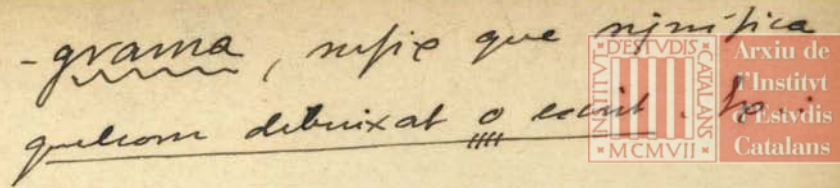 -grama, sufix que significa
quelcom dibuixat o escrit.
INSTITVT D'ESTVDIS CATALANS
MCMVII
Arxiu de
l'Institvt
d'Estvdis
Catalans